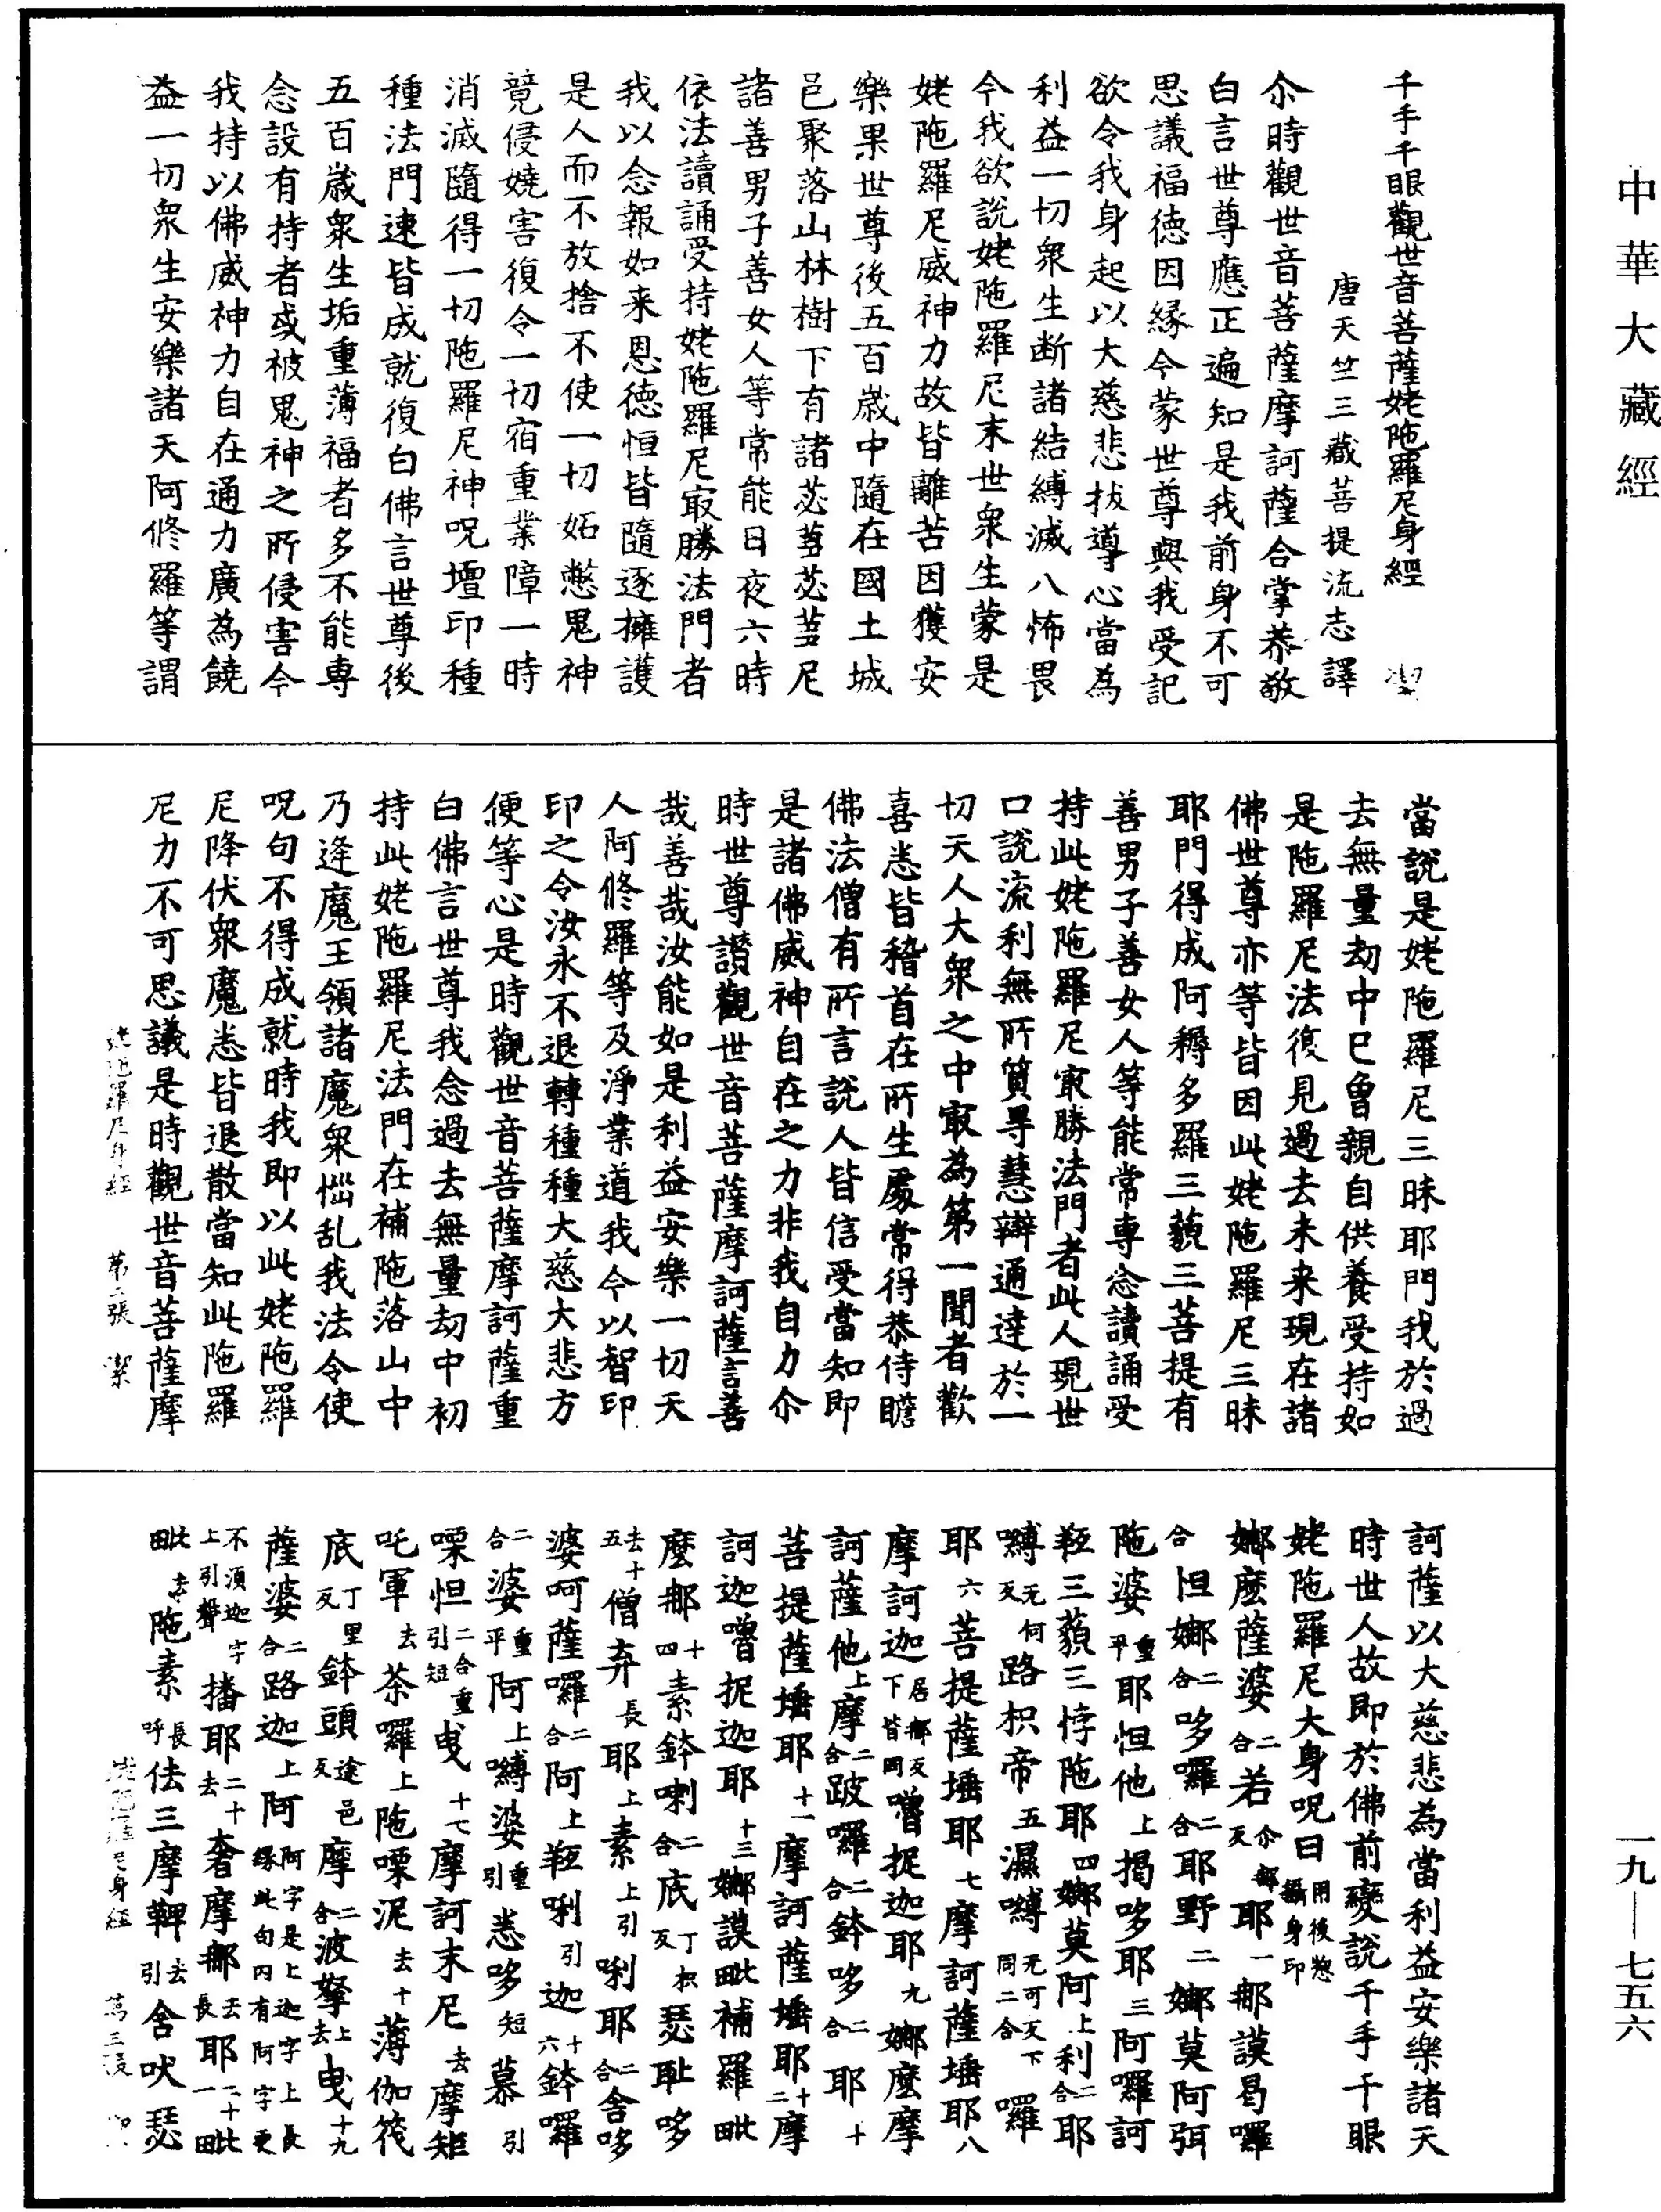 中華大藏經
千手千眼觀世音菩薩姥陁羅尼身經　潔
唐天竺三藏菩提流志譯
尒時觀世音菩薩摩訶薩合掌恭敬
白言世尊應正遍知是我前身不可
思議福德因緣今蒙世尊與我受記
欲令我身起以大慈悲拔導心當為
利益一切衆生断諸結縛滅八怖畏
今我欲說姥陁羅尼末世衆生蒙是
姥陁羅尼威神力故皆離苦因獲安
樂果世尊後五百歲中隨在國土城
邑聚落山林樹下有諸苾蒭苾蒭尼
諸善男子善女人等常能日夜六時
依法讀誦受持姥陁羅尼㝡勝法門者
我以念報如来恩德恒皆隨逐擁護
是人而不放捨不使一切妬憋鬼神
竟侵嬈害復令一切宿重業障一時
消滅隨得一切陁羅尼神呪壇印種
種法門速皆成就復白佛言世尊後
五百歲衆生垢重薄福者多不能專
念設有持者或被鬼神之所侵害今
我持以佛威神力自在通力廣為饒
益一切衆生安樂諸天阿脩羅等謂
當說是姥陁羅尼三昧耶門我於過
去無量劫中已曾親自供養受持如
是陁羅尼法復見過去未来現在諸
佛世尊亦等皆因此姥陁羅尼三昧
耶門得成阿耨多羅三藐三菩提有
善男子善女人等能常專念讀誦受
持此姥陁羅尼㝡勝法門者此人現世
口說流利無所質㝵慧辯通達於一
切天人大衆之中㝡為第一聞者歡
喜悉皆稽首在所生處常得恭侍瞻
佛法僧有所言說人皆信受當知即
是諸佛威神自在之力非我自力尒
時世尊讃觀世音菩薩摩訶薩言善
哉善哉汝能如是利益安樂一切天
人阿脩羅等及淨業道我今以智印
印之令汝永不退轉種種大慈大悲方
便等心是時觀世音菩薩摩訶薩重
白佛言世尊我念過去無量劫中初
持此姥陁羅尼法門在補陁落山中
乃逢魔王領諸魔衆惱乱我法令使
呪句不得成就時我即以此姥陁羅
尼降伏衆魔悉皆退散當知此陁羅
尼力不可思議是時觀世音菩薩摩
姥陁羅尼身經　第二張　潔
訶薩以大慈悲為當利益安樂諸天
時世人故即於佛前變說千手千眼
姥陁羅尼大身呪曰用後惣攝身印
娜麽薩婆二合若尒娜反耶一那謨曷囉
二合怛娜二合哆囉二合耶野二娜莫阿弭
陁婆重平耶怛他上揭哆耶三阿囉訶
羝三藐三悖陁耶四娜莫阿上利二合耶
嚩无何反路枳帝五濕嚩无可反下同二合囉
耶六菩提薩埵耶七摩訶薩埵耶八
摩訶迦居娜反下皆同嚕抳迦耶九娜麽摩
訶薩他上摩二合跛囉二合鉢哆二合耶十
菩提薩埵耶十一摩訶薩埵耶十二摩
訶迦嚕抳迦耶十三娜謨毗補羅毗
麽那十四素鉢喇二合底丁枳反瑟耻哆
去十五僧弃長耶上素上引唎耶二合舍哆
婆呵薩囉二合阿上羝唎引迦十六鉢囉
二合婆重平阿上嚩婆重引悉哆短慕引
㗚怛二合重引短曵十七摩訶末尼去摩矩
吒軍去荼囉上陁㗚泥去十薄伽筏
底丁里反鉢頭途邑反摩二合波拏上去曵十九
薩婆二合路迦上阿阿字是上迦字上長緣此句内有阿字更不須迦字上引聲播耶去二十奢摩那去長耶二十一毗
毗去陁素長呼佉三摩鞞去引舍吠瑟
一九—七五六